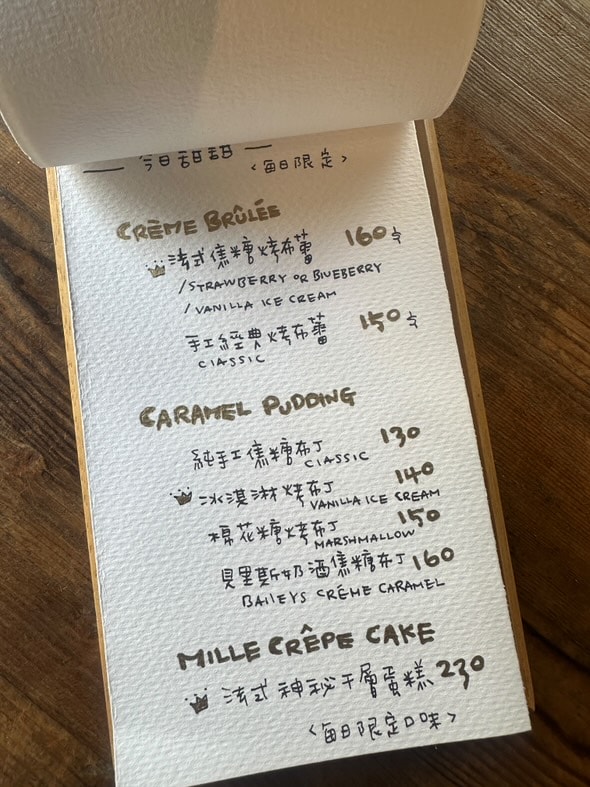 — 今日甜甜 —
<每日限定>
CRÈME BRÛLÉE
法式焦糖烤布蕾 160
/STRAWBERRY OR BLUEBERRY
/VANILLA ICE CREAM
手工經典烤布蕾 150
CLASSIC
CARAMEL PUDDING
純手工焦糖布丁 130
CLASSIC
冰淇淋烤布丁 140
VANILLA ICE CREAM
棉花糖烤布丁 150
MARSHMALLOW
貝里斯奶酒焦糖布丁 160
BAILEYS CRÉME CARAMEL
MILLE CRÊPE CAKE
法式神秘千層蛋糕 230
<每日限定口味>